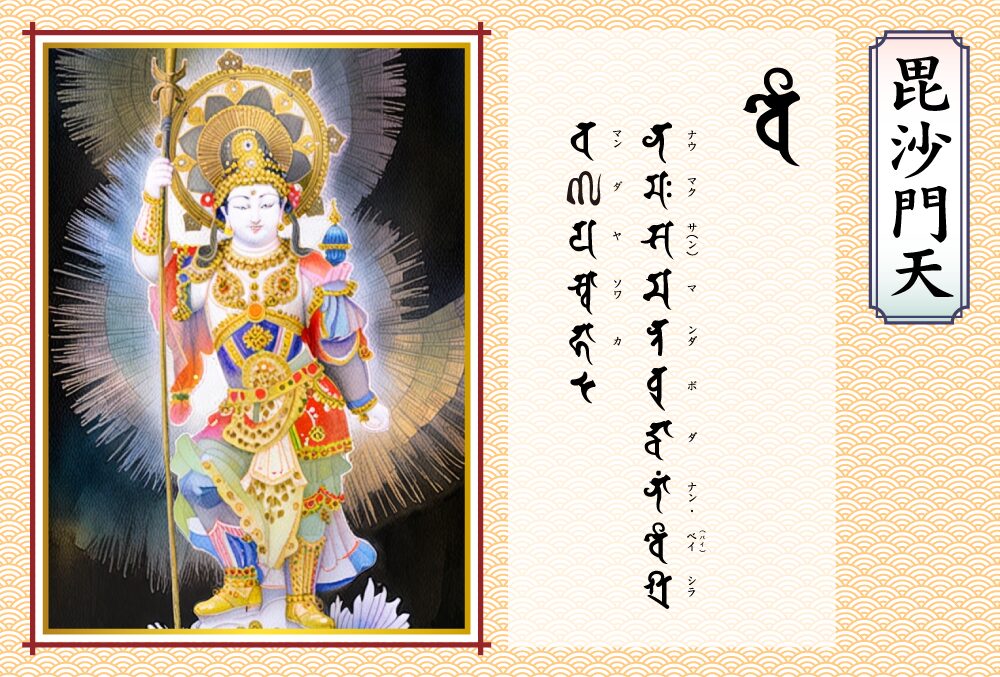 毘沙門天
𑖪𑖹
𑖡𑖦𑖾𑖭𑖦𑖡𑖿𑖝𑖤𑖲𑖟𑖿𑖠𑖯𑖡𑖯𑖽𑖪𑖹𑖫𑖿𑖨
ナウ マク サ(ン) マ ンダ ボ ダ ナン・ ベイ(ハイ) シラ
𑖪𑖜𑖯𑖧𑖭𑖿𑖪𑖯𑖮𑖯
マン ダ ヤ ソワ カ